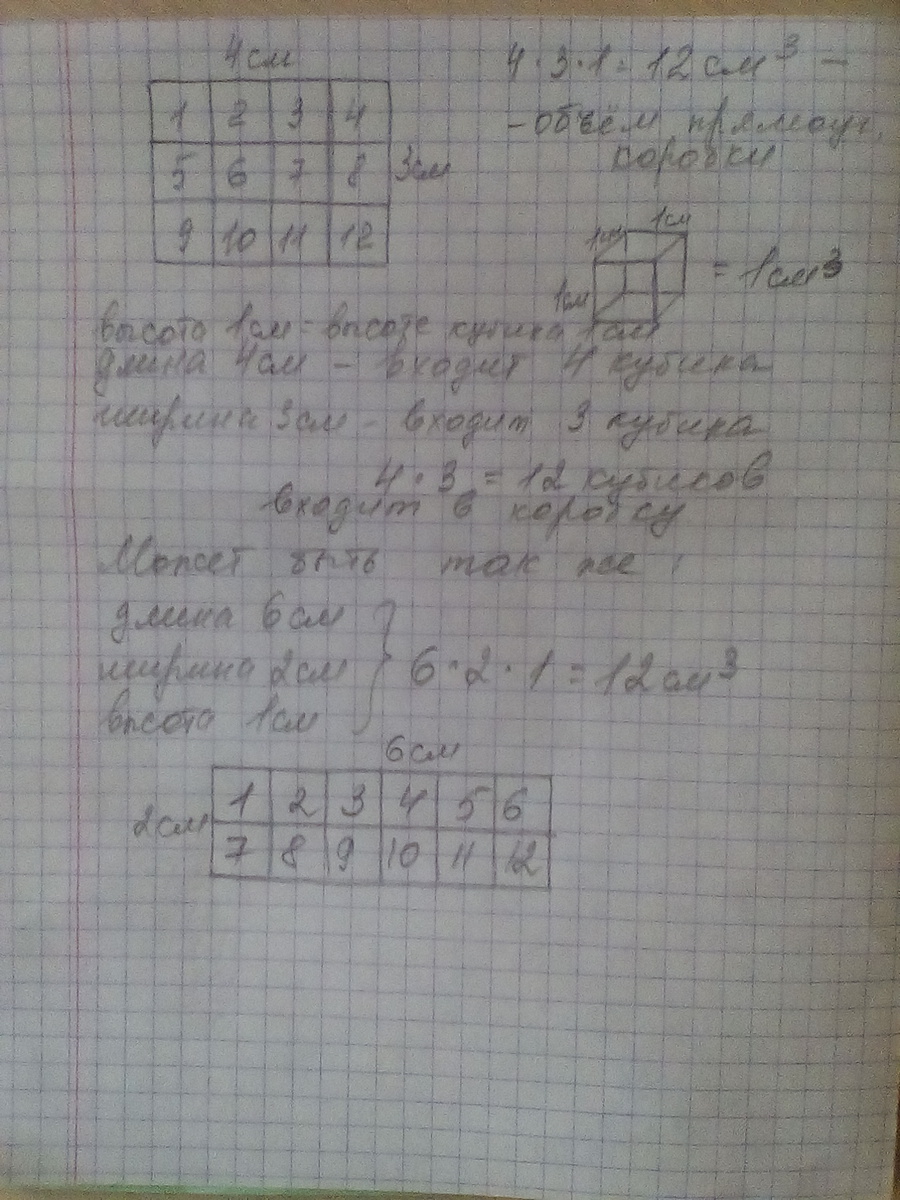 4см
4·3·1=12см³ –
1 2 3 4
– объём прямоуг.
коробки
5 6 7 8 3см
9 10 11 12
1см
1см
1см
= 1см³
высота 1см = высоте кубика 1см
длина 4см – входит 4 кубика
ширина 3см – входит 3 кубика
4·3 = 12 кубиков
входит в коробку
Может быть так же:
длина 6см
ширина 2см
6·2·1=12см³
высота 1см
6см
2см
1 2 3 4 5 6
7 8 9 10 11 12